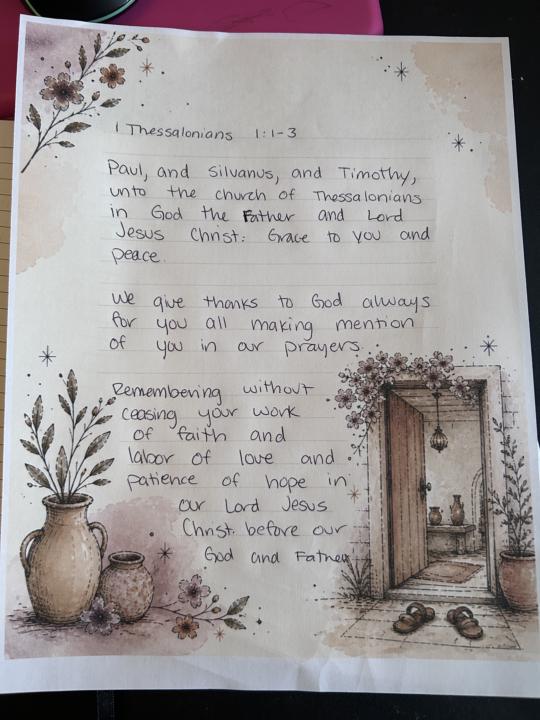 1 Thessalonians 1:1-3
Paul, and Silvanus, and Timothy,
unto the church of Thessalonians
in God the Father and Lord
Jesus Christ: Grace to you and
peace.
We give thanks to God always
for you all making mention
of you in our prayers.
Remembering without
ceasing your work
of faith and
labor of love and
patience of hope in
our Lord Jesus
Christ before our
God and Father